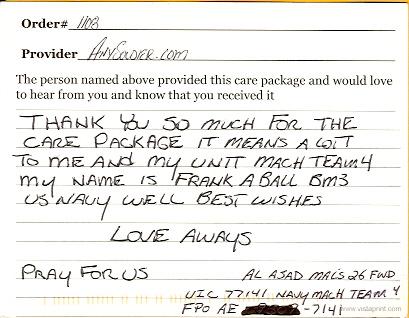 Order# 1108
Provider AnySoldier.com
The person named above provided this care package and would love
to hear from you and know that you received it
THANK YOU SO MUCH FOR THE
CARE PACKAGE IT MEANS A LOT
TO ME AND MY UNIT MACH TEAM 4
MY NAME IS FRANK A BALL BM3
US NAVY WELL BEST WISHES
LOVE AWAYS
PRAY FOR US
AL ASAD MAL'S 26 FWD
UIC 77141 NAVY MACH TEAM 4
FPO AE -7141
www.vistaprint.com